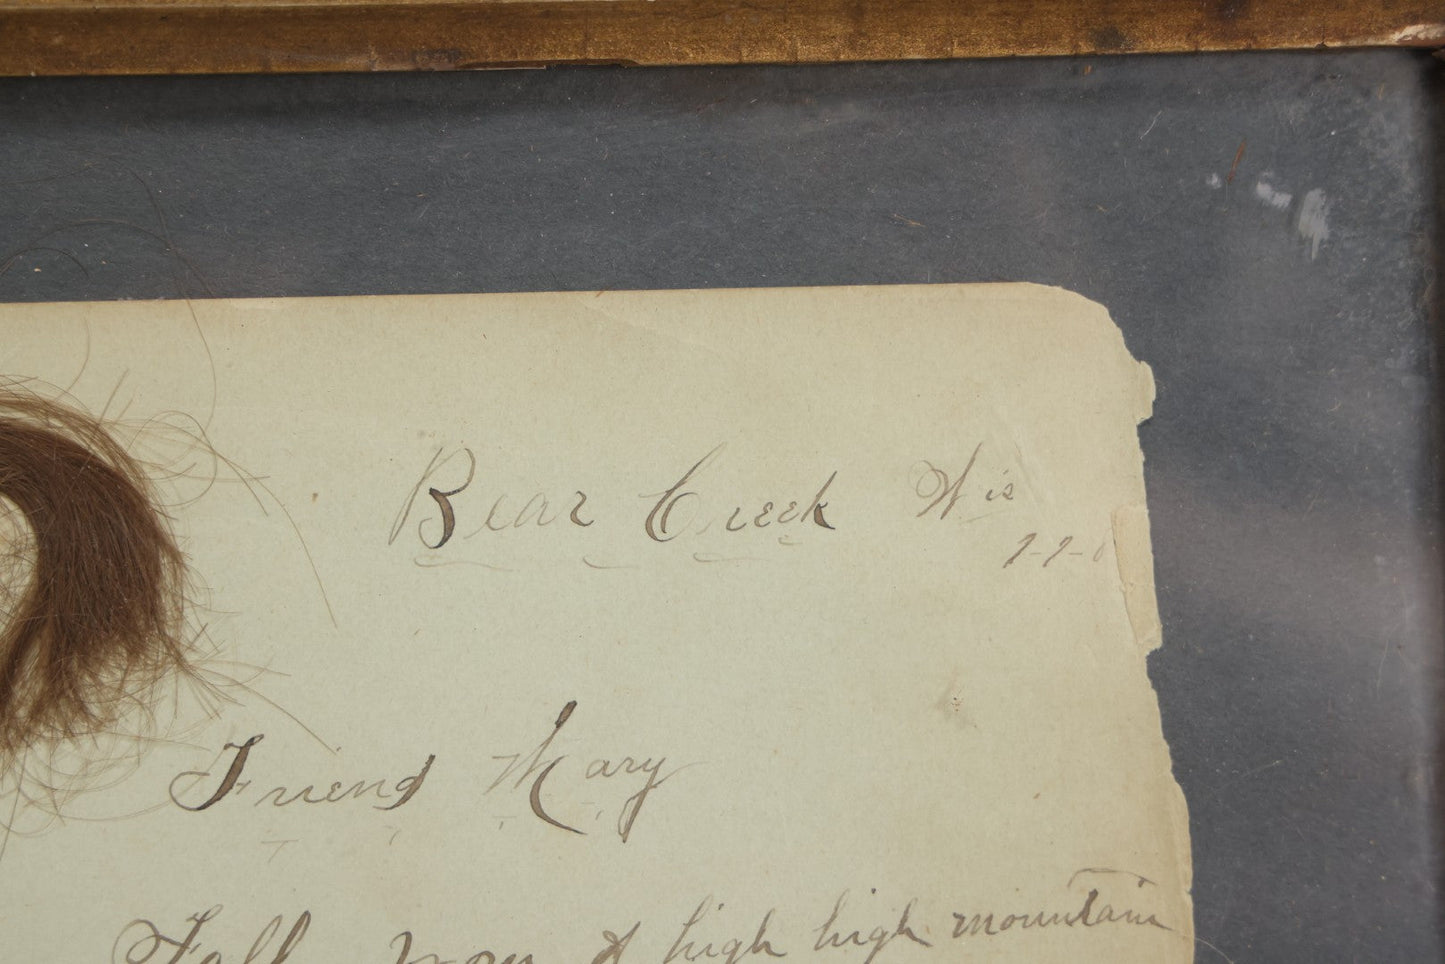 Bear Creek Wis
7-7-8
Friend Mary
Fall from a high high mountain